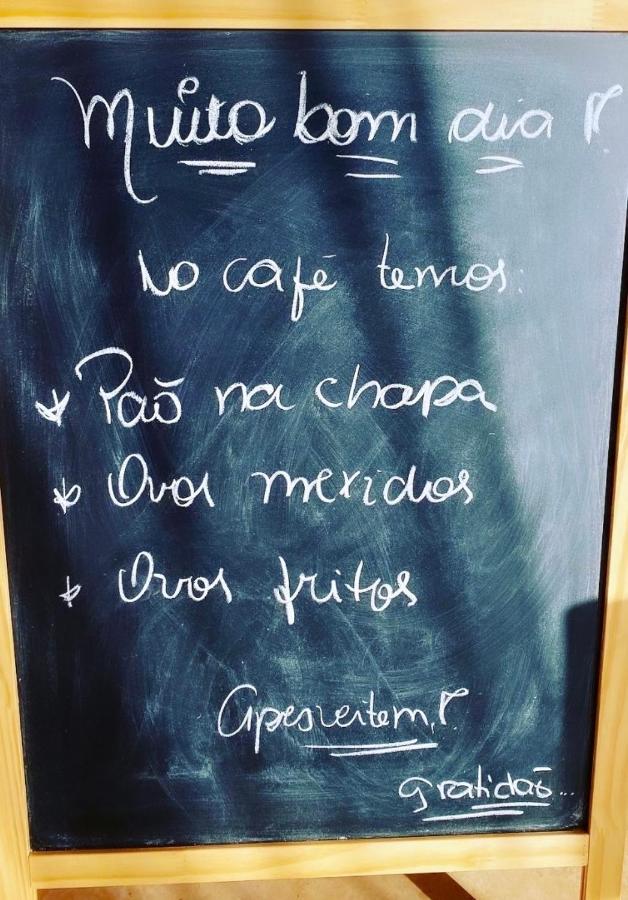 Muito bom dia!
No café temos:
Paõ na chapa
Ovos mexidos
Ovos fritos
Apesveitem!
gratidaõ...